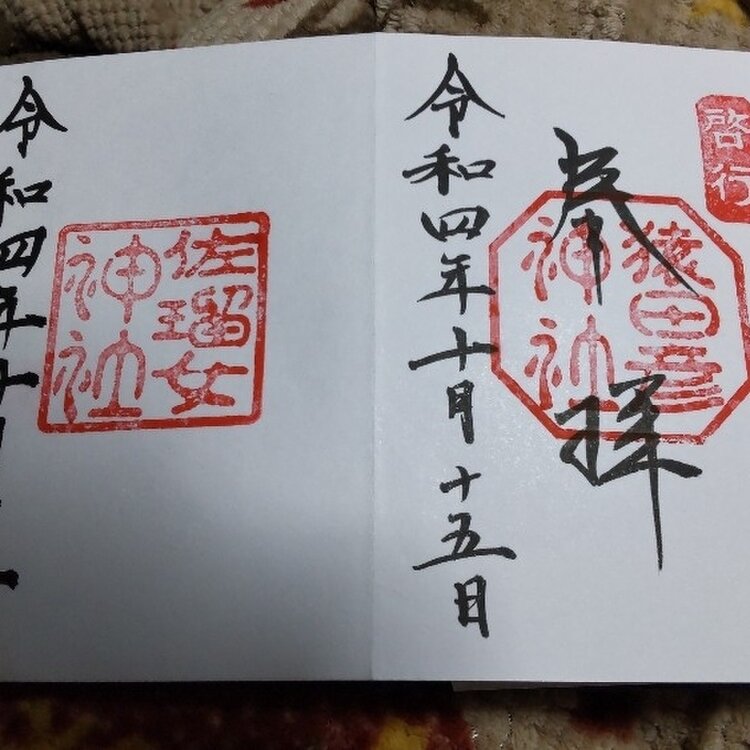 啓行
奉拝
猿田彦
神社
令和四年十月十五日
佐瑠女
神社
令和四年十月